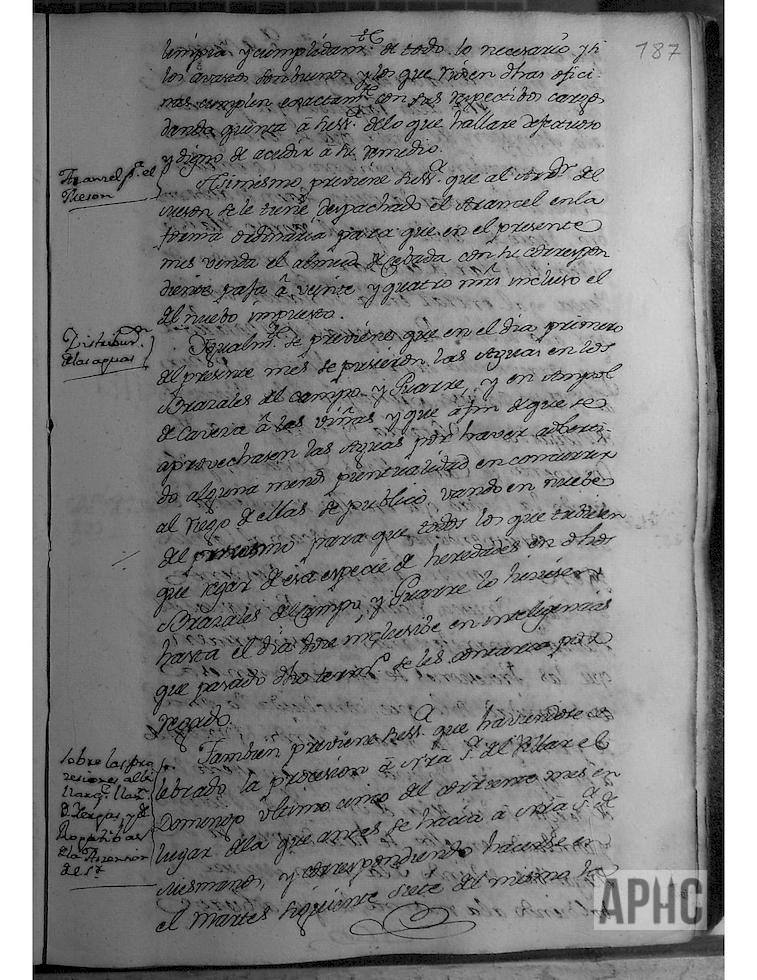 187
limpia y cumplidamte. de todo lo necesario y si
los avastos son buenos y los que rixen otras ofici-
nas cumplen exactamte. con sus respectibos cargos
dando quenta á su Sa. de lo que hallare defectuoso
y digno de acudir á su remedio.
Aranzel pa. el
Meson
Asimismo previene su Sa. que al Arrdor. del
meson se le tiene despachado el Arancel en la
forma ordinaria para que en el presente
mes venda el almud de cebada con su correspon
diente paja á veinte y quatro mrs. incluso el
del nuebo impuesto.
Distribuon.
de las aguas
Igualmte. se previene que en el dia primero
del presente mes se pusieron las Aguas en los
Brazales del campo y Guarre, y en
de á las viñas y que á fin de que se
aprovechasen las Aguas por haver adberti-
do alguna menos puntualidad en concurrir
al riego de ellas se publicó vando en nuebe
del mismo para que todos los que tubiesen
que regar de esa especie de heredades en dhos
Brazales del Campo y Guarre lo hiziesen
hasta el dia doze inclusibe en inteligencia
que pasado dho termo. se les contaria por
regado.
Sobre las pro
cesiones
y de
Rogatibas
de la Ascension
del Sr.
Tambien previene su Sa. que haviendose ce
lebrado la procesion á Nra Sa. del Pilar el
Domingo ultimo cinco del corriente mes en
lugar de la que antes se hacia á Nra Sa. de
, y correspondiendo hacerse en
el Martes siguiente siete del mismo la
APHC